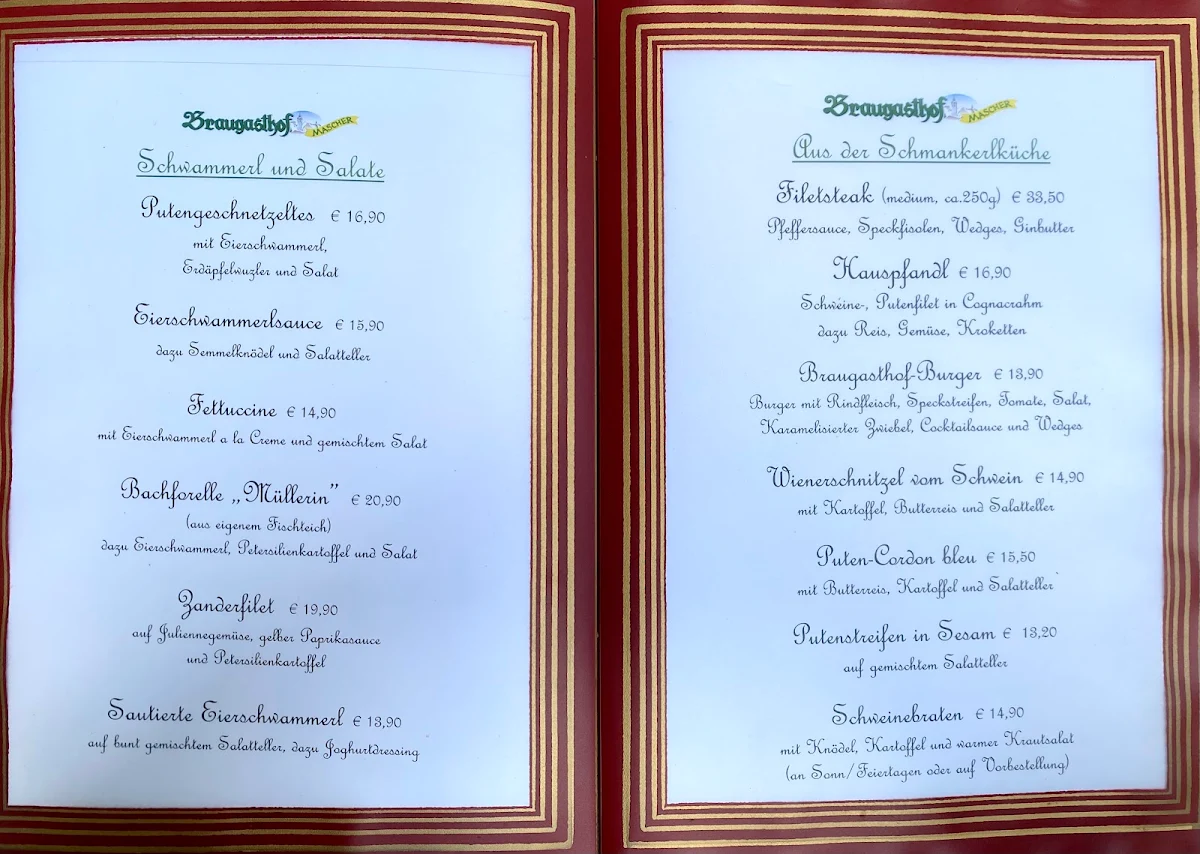 Braugasthof MASCHER
Schwammerl und Salate
Putengeschnetzeltes € 16,90
mit Eierschwammerl,
Erdäpfelwuzler und Salat
Eierschwammerlsauce € 15,90
dazu Semmelknödel und Salatteller
Fettuccine € 14,90
mit Eierschwammerl a la Creme und gemischtem Salat
Bachforelle „Müllerin” € 20,90
(aus eigenem Fischteich)
dazu Eierschwammerl, Petersilienkartoffel und Salat
Zanderfilet € 19,90
auf Juliennegemüse, gelber Paprikasauce
und Petersilienkartoffel
Sautierte Eierschwammerl € 13,90
auf bunt gemischtem Salatteller, dazu Joghurtdressing
Braugasthof MASCHER
Aus der Schmankerlküche
Filetsteak (medium, ca.250g) € 33,50
Pfeffersauce, Speckfisolen, Wedges, Ginbutter
Hauspfandl € 16,90
Schweine-, Putenfilet in Cognacrahm
dazu Reis, Gemüse, Kroketten
Braugasthof-Burger € 13,90
Burger mit Rindfleisch, Speckstreifen, Tomate, Salat,
Karamelisierter Zwiebel, Cocktailsauce und Wedges
Wienerschnitzel vom Schwein € 14,90
mit Kartoffel, Butterreis und Salatteller
Puten-Cordon bleu € 15,50
mit Butterreis, Kartoffel und Salatteller
Putenstreifen in Sesam € 13,20
auf gemischtem Salatteller
Schweinebraten € 14,90
mit Knödel, Kartoffel und warmer Krautsalat
(an Sonn/Feiertagen oder auf Vorbestellung)